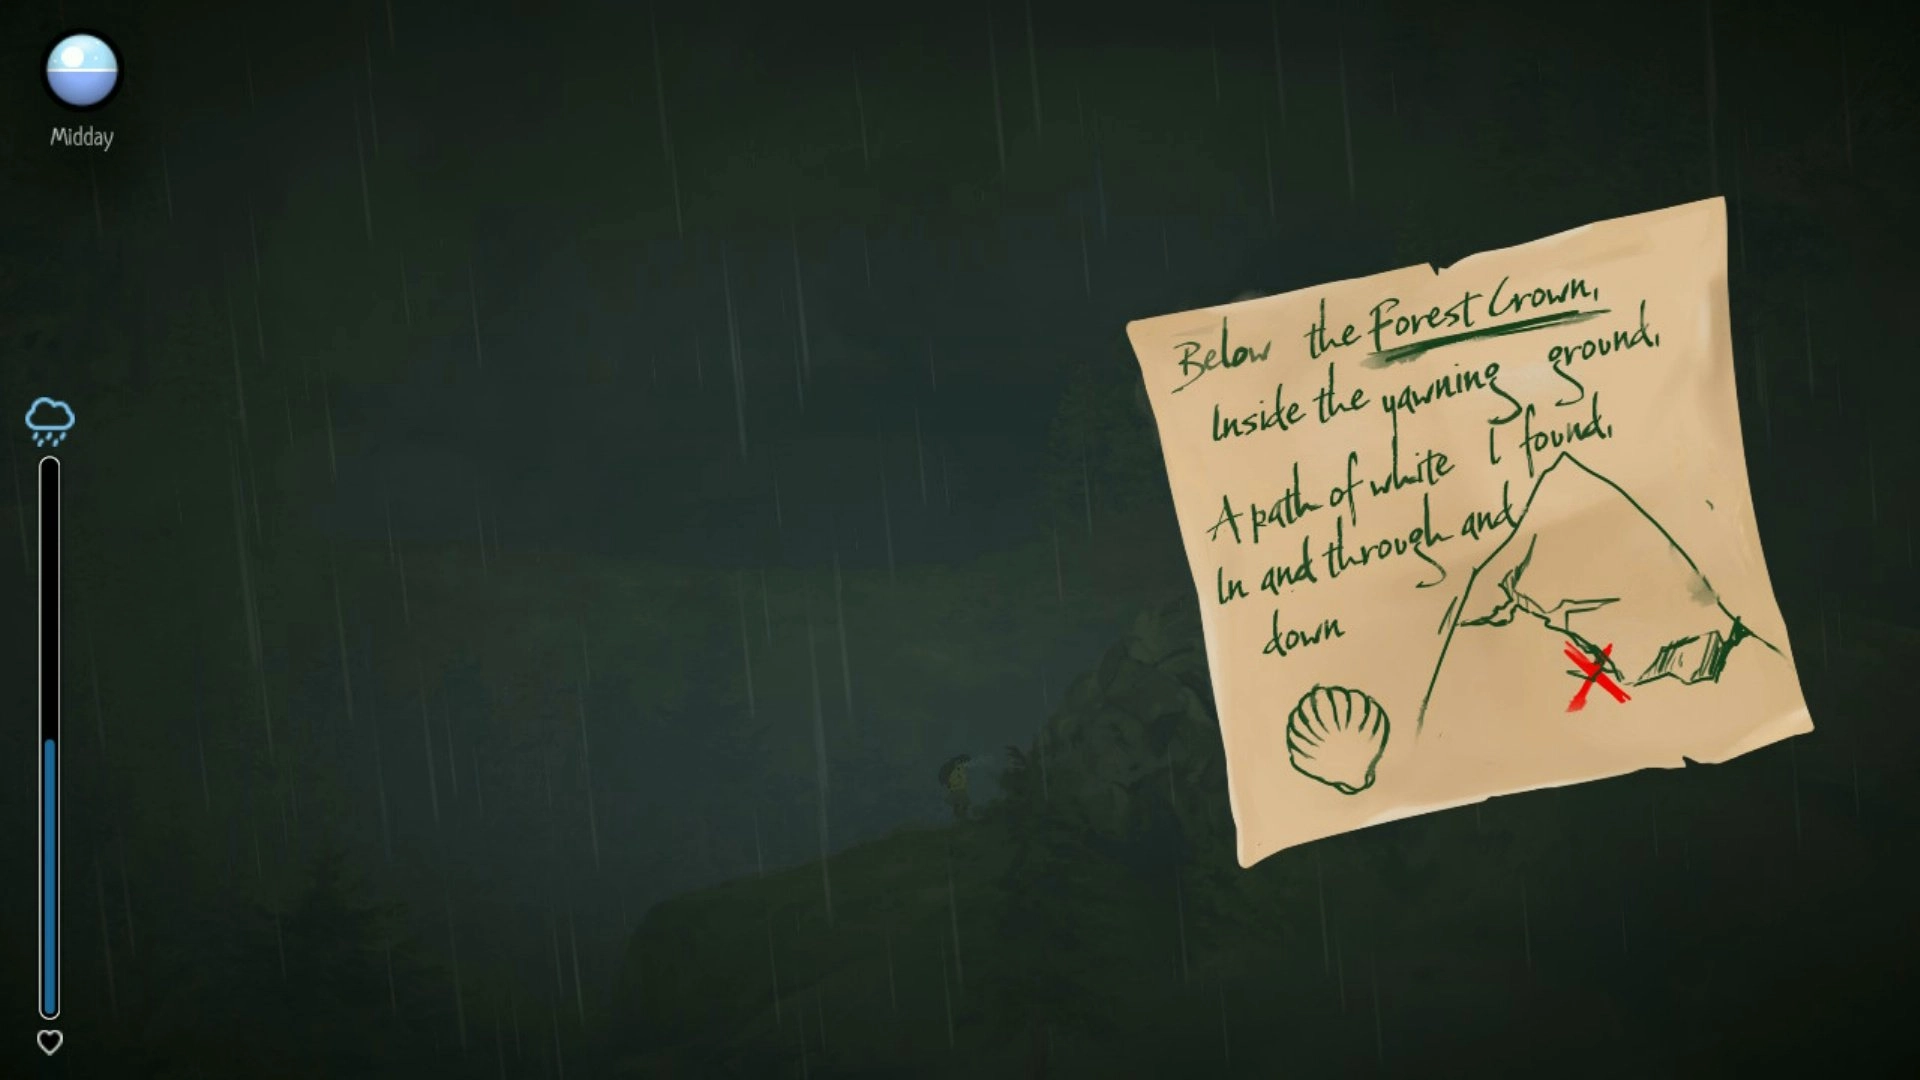 Midday
Below the Forest Crown,
Inside the yawning ground,
A path of white I found,
In and through and
down